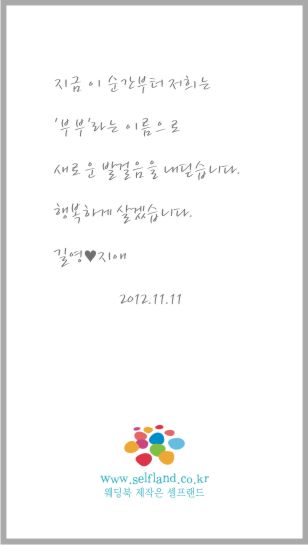 지금 이 순간부터 저희는
'부부'라는 이름으로
새로운 발걸음을 내딛습니다.
행복하게 살겠습니다.
길영♥지애
2012.11.11
www.selfland.co.kr
웨딩북 제작은 셀프랜드